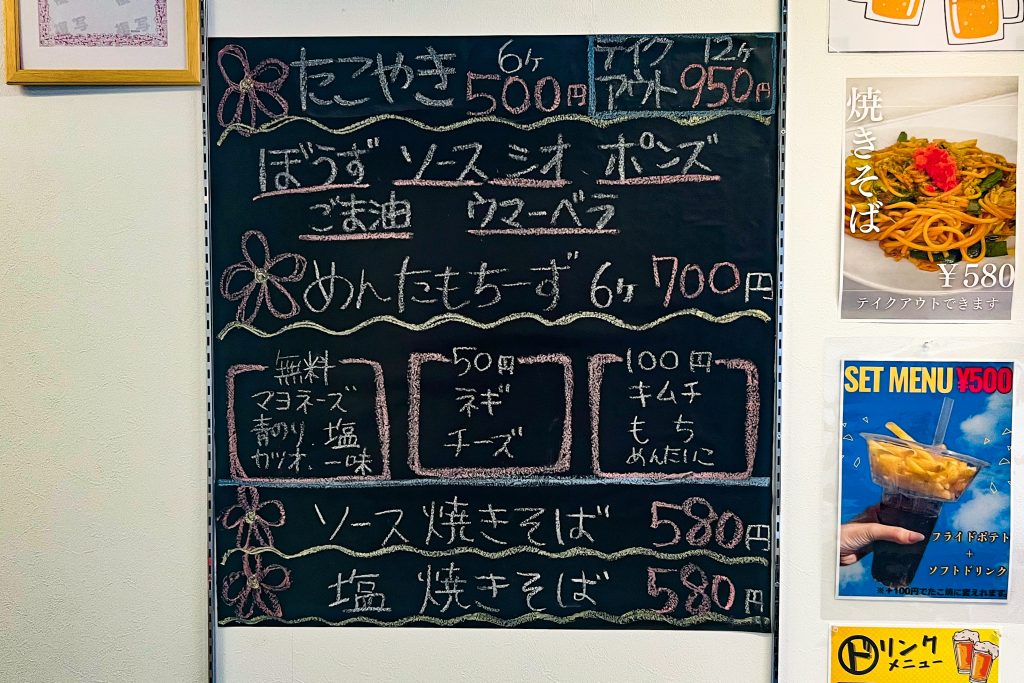 たこやき 6ヶ 500円
テイクアウト 12ヶ 950円
ぼうず ソース シオ ポンズ
ごま油 ウマーベラ
めんたもちーず 6ヶ 700円
無料
マヨネーズ
青のり、塩
カツオ、一味
50円
ネギ
チーズ
100円
キムチ
もち
めんたいこ
ソース焼きそば 580円
塩焼きそば 580円
焼きそば
￥580
テイクアウトできます
SET MENU ¥500
フライドポテト
+
ソフトドリンク
※+100円でたこ焼に変えれます。
ドリンク
メニュー